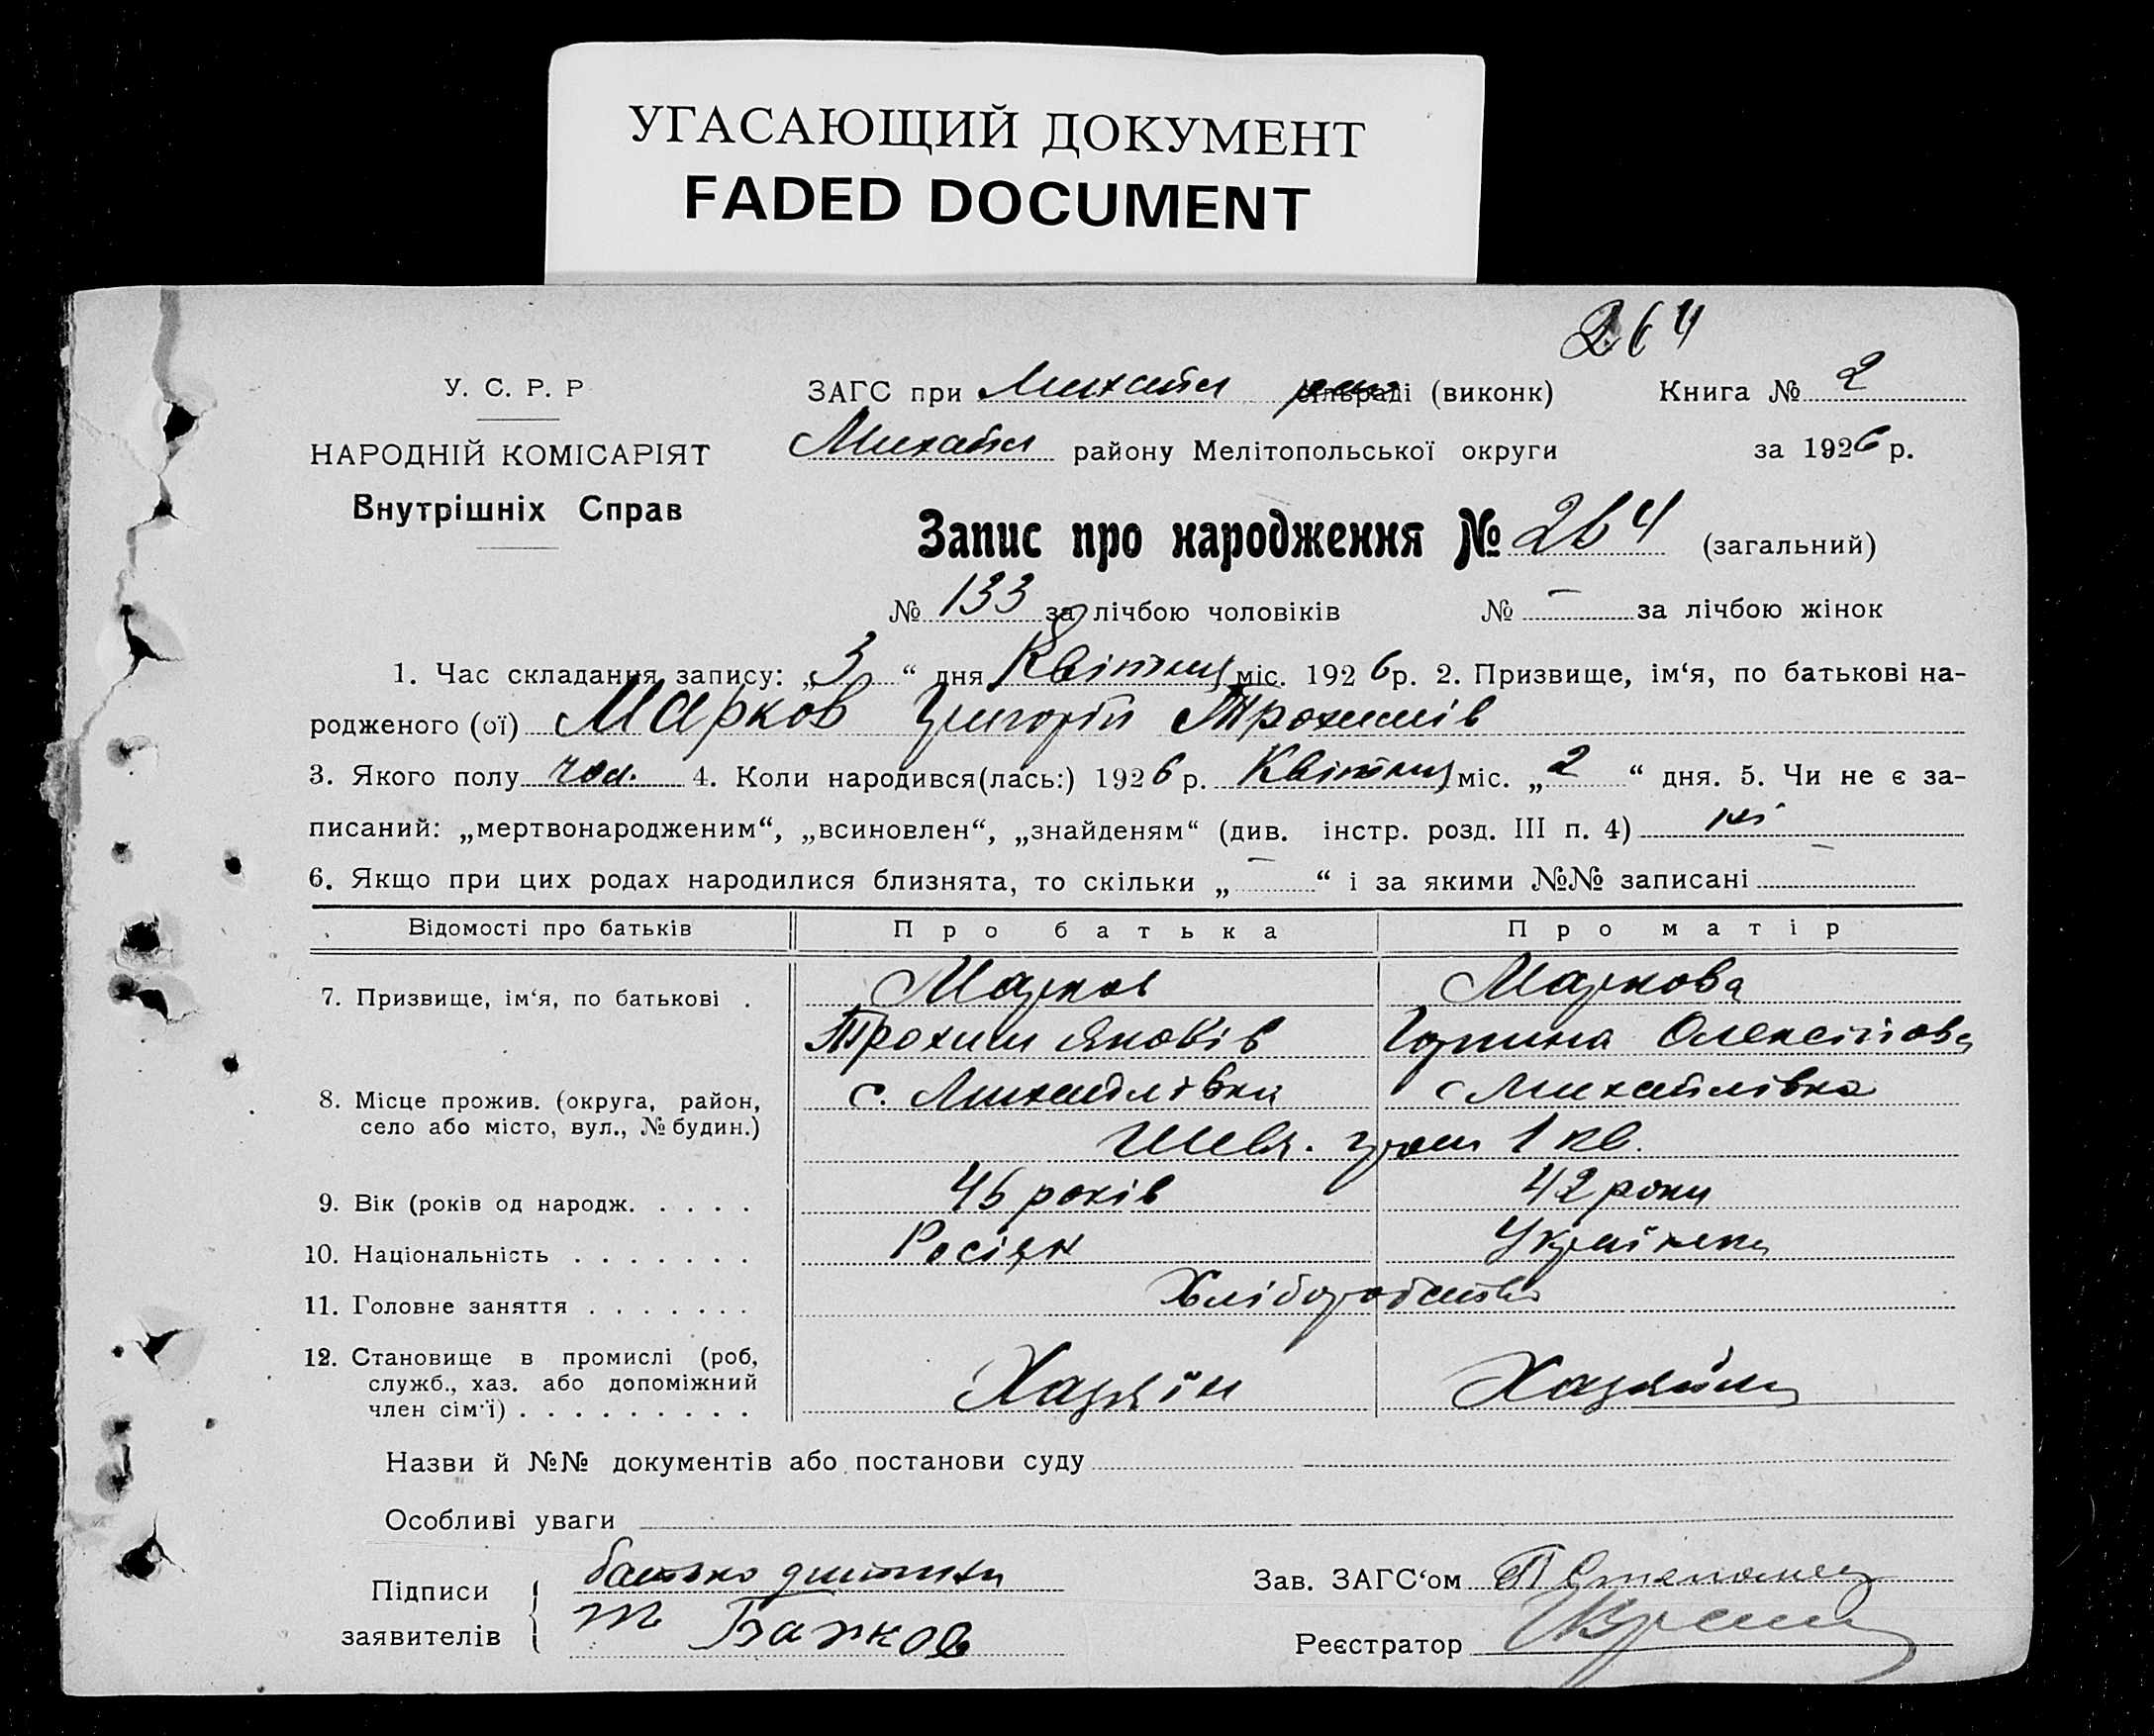 УГАСАЮЩИЙ ДОКУМЕНТ
FADED DOCUMENT
264
У. С. Р. Р
НАРОДНІЙ КОМІСАРІЯТ
Внутрішніх Справ
ЗАГС при Михайл сільраді (виконк) Книга № 2
Михайл району Мелітопольської округи за 1926 р.
Запис про народження № 264 (загальний)
№ 133 за лічбою чоловіків № – за лічбою жінок
1. Час складання запису: „3“ дня Квітня міс. 1926 р. 2. Призвище, ім‘я, по батькові на-
родженого (ої) Марков Григорій Трохимів
3. Якого полу чол. 4. Коли народився(лась:) 1926 р. Квітня міс. „2“ дня. 5. Чи не є за-
писаний: „мертвонародженим“, „всиновлен“, „знайденям“ (див. інстр. розд. III п. 4) ні
6. Якщо при цих родах народилися близнята, то скільки „–“ і за якими №№ записані –
Відомості про батьків Про батька Про матір
7. Призвище, ім‘я, по батькові . Марков Маркова
Трохим Яковів Горпина Олексіїова
8. Місце прожив. (округа, район, с. Михайлівка с Михайлівка
село або місто, вул., № будин.)
1 кв.
9. Вік (років од народж. . . . . 45 років 42 роки
10. Національність . . . . . . . Росіян Українка
11. Головне заняття . . . . . . . Хліборобство
12. Становище в промислі (роб,
служб., хаз. або допоміжний Хазяїн Хазяйка
член сім‘ї) . . . . . . . . .
Назви й №№ документів або постанови суду
Особливі уваги
Підписи батько дитини Зав. ЗАГС‘ом
заявителів Реєстратор